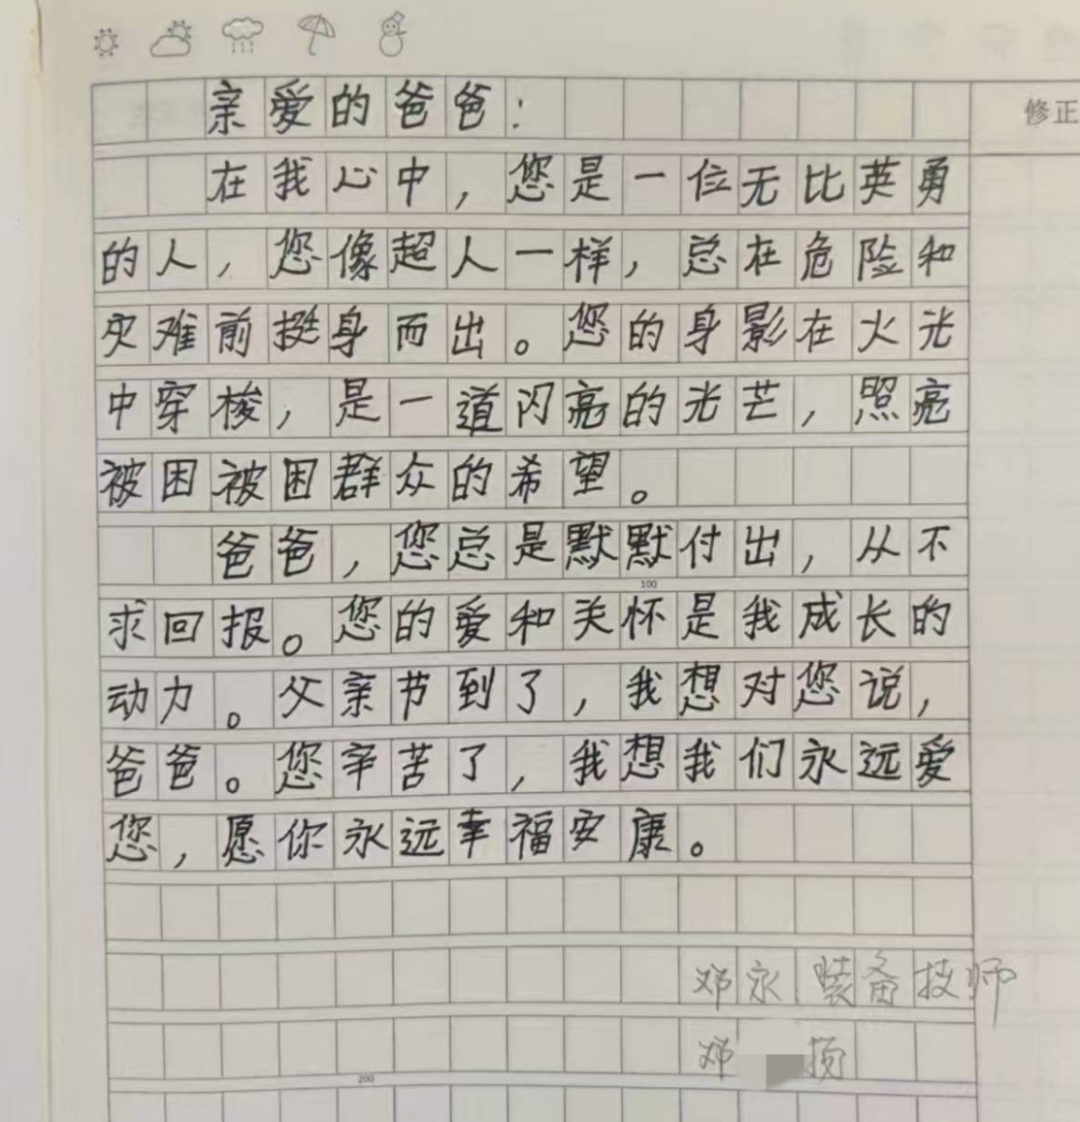 修正
亲爱的爸爸：
在我心中，您是一位无比英勇
的人，您像超人一样，总在危险和
灾难前挺身而出。您的身影在火光
中穿梭，是一道闪亮的光芒，照亮
被困被困群众的希望。
爸爸，您总是默默付出，从不
100
求回报。您的爱和关怀是我成长的
动力。父亲节到了，我想对您说，
爸爸。您辛苦了，我想我们永远爱
您，愿你永远幸福安康。
邓永 装备技师
邓
200